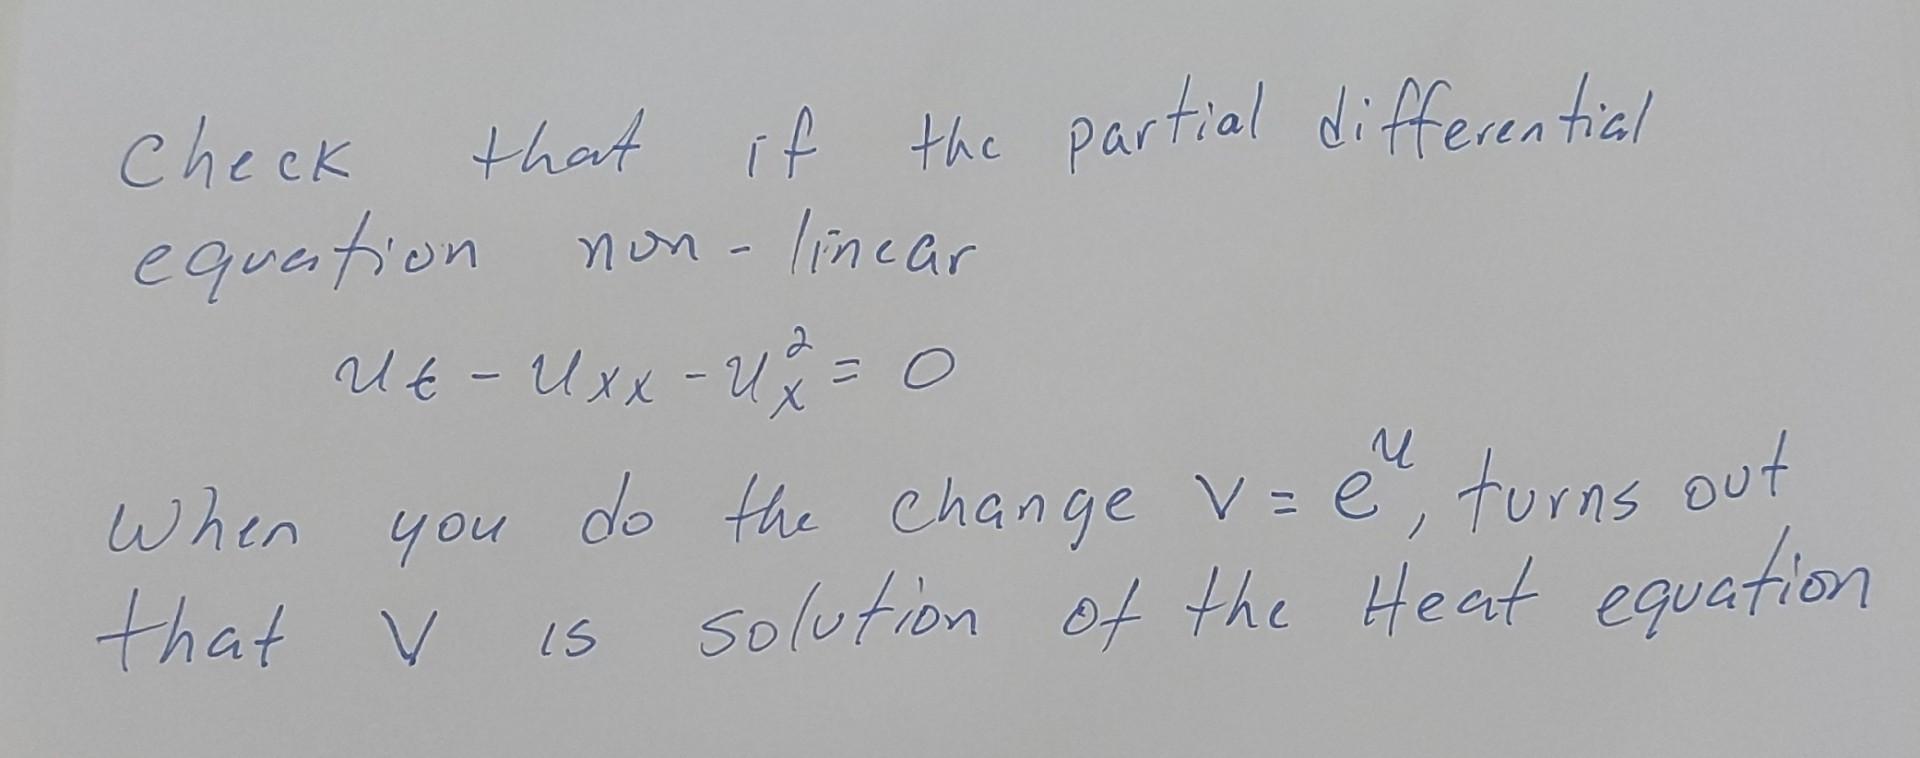 Check that if the partial differential
equation non-linear
u_t - u_xx - u_x^2 = 0
When you do the change v = e^u, turns out
that v is solution of the Heat equation